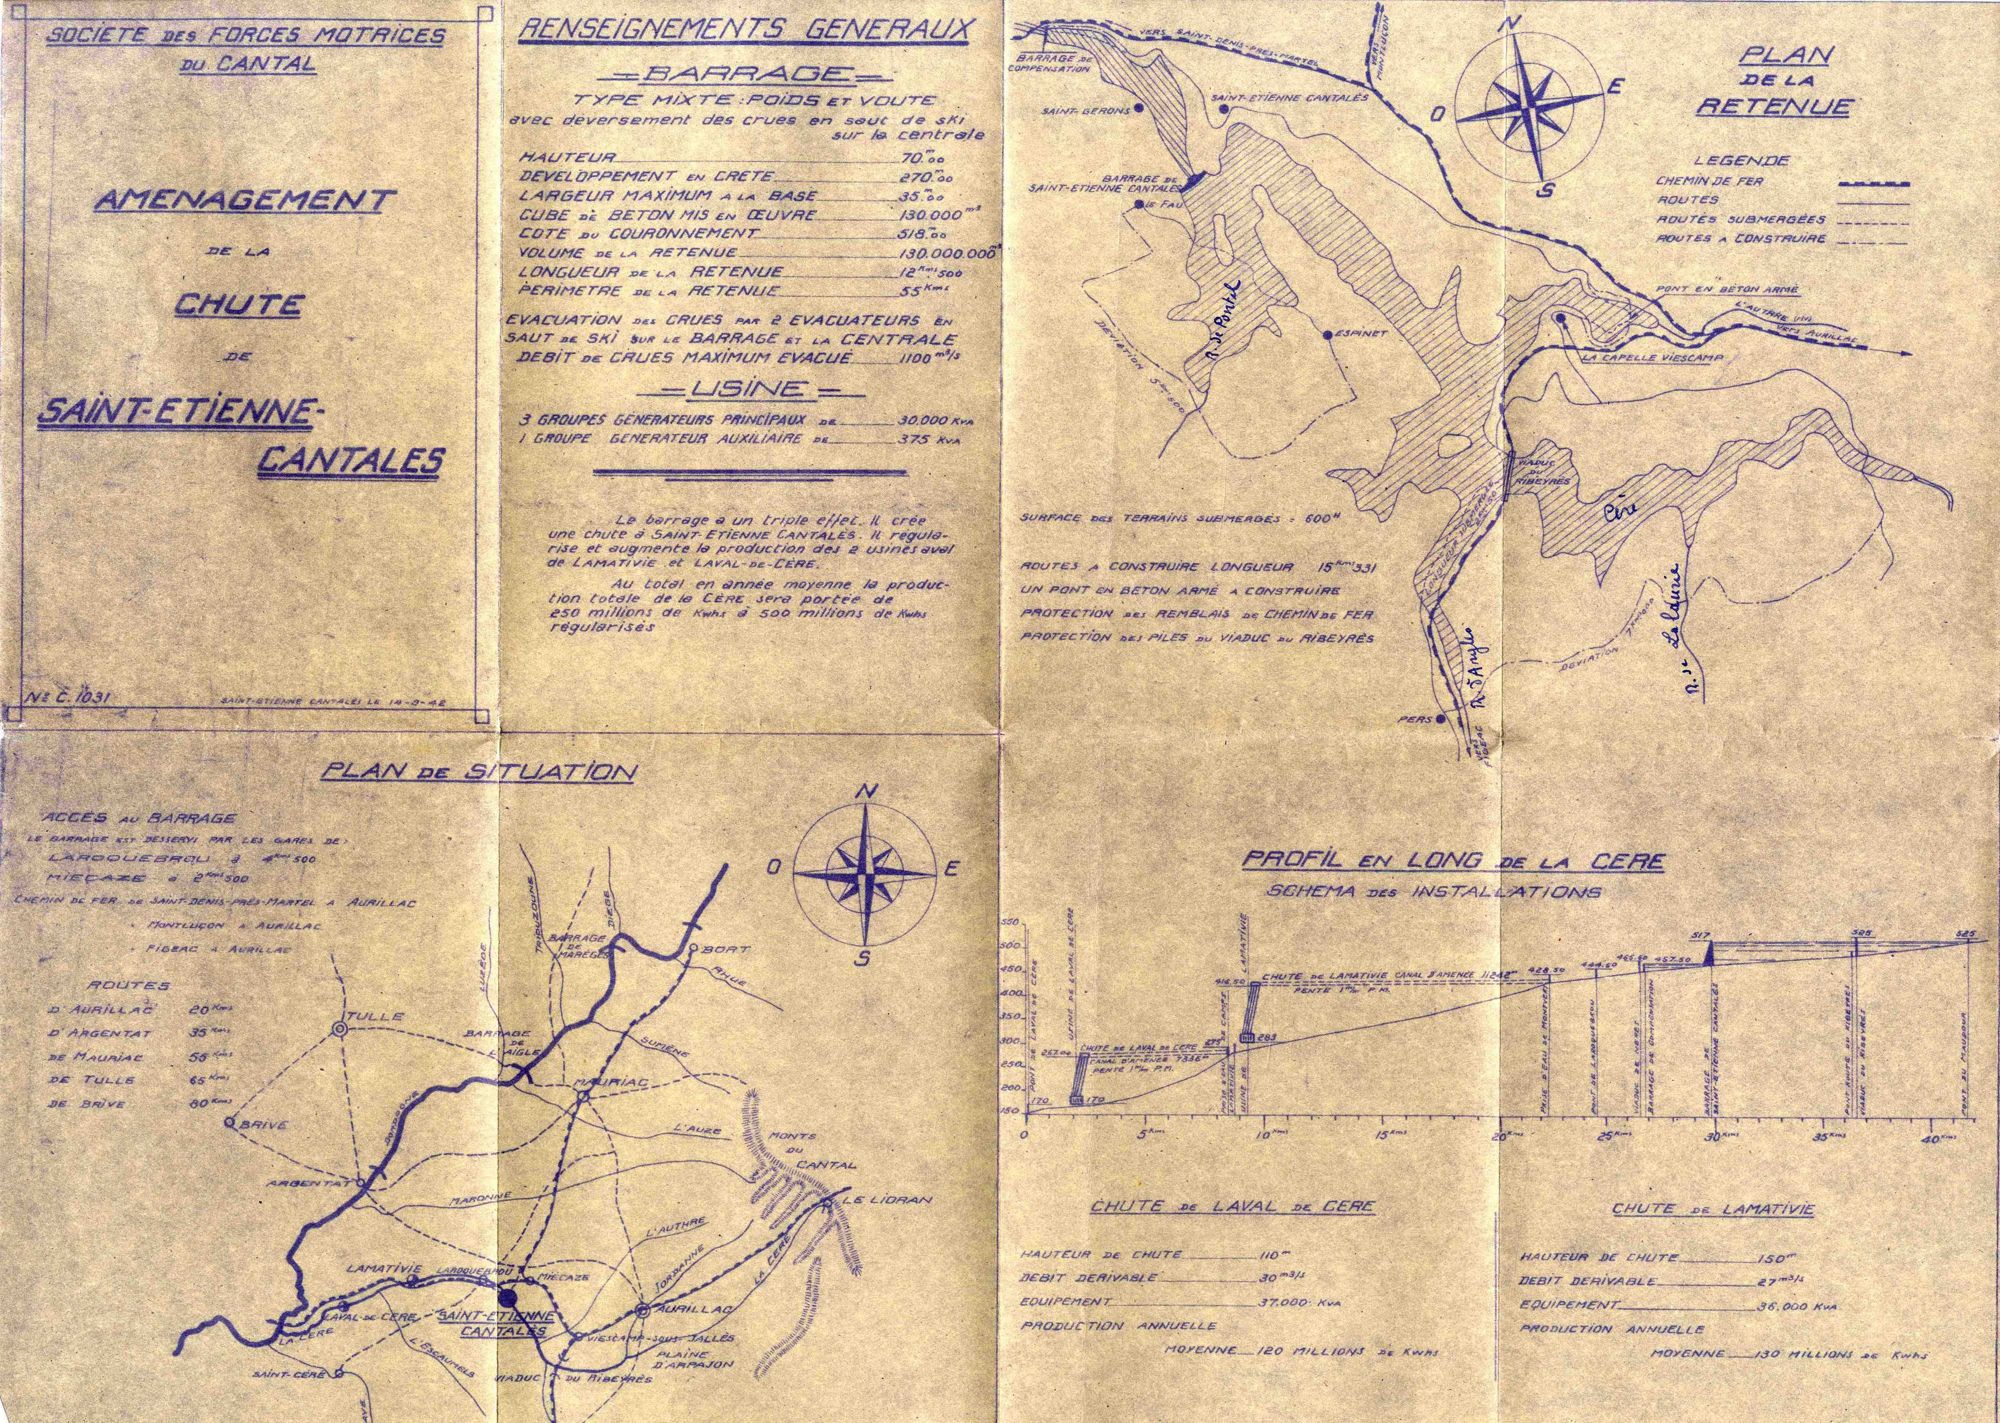 SOCIÉTÉ DES FORCES MOTRICES
DU CANTAL
AMENAGEMENT
DE LA
CHUTE
DE
SAINT-ETIENNE-
CANTALES
No C.1031
SAINT-ETIENNE CANTALES LE 14-9-42
RENSEIGNEMENTS GENERAUX
=BARRAGE=
TYPE MIXTE: POIDS ET VOUTE
avec déversement des crues en saut de ski
sur la centrale
HAUTEUR 70.m00
DEVELOPPEMENT EN CRÊTE 270.m00
LARGEUR MAXIMUM A LA BASE 35.m00
CUBE DE BETON MIS EN ŒUVRE 130.000 m3
COTE DU COURONNEMENT 518.m00
VOLUME DE LA RETENUE 130.000.000 m3
LONGUEUR DE LA RETENUE 12 Kms 500
PERIMETRE DE LA RETENUE 55 Kms
EVACUATION DES CRUES PAR 2 EVACUATEURS EN
SAUT DE SKI SUR LE BARRAGE ET LA CENTRALE
DEBIT DE CRUES MAXIMUM EVACUÉ 1100 m3/s
=USINE=
3 GROUPES GENERATEURS PRINCIPAUX DE 30.000 KVA
1 GROUPE GENERATEUR AUXILIAIRE DE 375 KVA
Le barrage a un triple effet. Il crée
une chute à SAINT-ETIENNE CANTALES. Il régula-
rise et augmente la production des 2 usines aval
de LAMATIVIE et LAVAL-DE-CÈRE.
Au total en année moyenne la produc-
tion totale de la CÈRE sera portée de
250 millions de Kwhs à 500 millions de Kwhs
régularisés
PLAN
DE LA
RETENUE
LEGENDE
CHEMIN DE FER
ROUTES
ROUTES SUBMERGÉES
ROUTES A CONSTRUIRE
N
E
S
O
VERS SAINT-DENIS-PRÈS-MARTEL
VERS MONTLUÇON
BARRAGE DE
COMPENSATION
SAINT-GERONS
SAINT-ETIENNE CANTALÈS
BARRAGE DE
SAINT-ETIENNE CANTALES
LE FAU
R. de Pontal
ESPINET
DEVIATION 5 Kms 500
PONT EN BETON ARMÉ
L'AUTHRE (riv)
VERS AURILLAC
LA CAPELLE VIESCAMP
VIADUC
DU
RIBEYRÈS
Cère
DEVIATION
R. d'Anglès
PERS
VERS
FIGEAC
SURFACE DES TERRAINS SUBMERGÉS : 600 H
ROUTES A CONSTRUIRE LONGUEUR 15 Kms 331
UN PONT EN BETON ARMÉ A CONSTRUIRE
PROTECTION DES REMBLAIS DE CHEMIN DE FER
PROTECTION DES PILES DU VIADUC DU RIBEYRÈS
PLAN DE SITUATION
ACCES AU BARRAGE
LE BARRAGE EST DESSERVI PAR LES GARES DE:
LAROQUEBROU à 4 Kms 500
MIÉCAZE à 2 Kms 500
CHEMIN DE FER DE SAINT-DENIS-PRÈS-MARTEL A AURILLAC
" MONTLUÇON A AURILLAC
" FIGEAC A AURILLAC
ROUTES
D'AURILLAC 20 Kms
D'ARGENTAT 35 Kms
DE MAURIAC 56 Kms
DE TULLE 65 Kms
DE BRIVE 80 Kms
N
E
S
O
LUZÈGE
TRIOUZOUNE
DIÈGE
BARRAGE
DE
MARÈGES
BORT
RHUE
TULLE
BARRAGE
DE
L'AIGLE
SUMÈNE
MAURIAC
BRIVE
DORDOGNE
L'AUZE
MONTS
DU
CANTAL
ARGENTAT
MARONNE
LE LIORAN
L'AUTHRE
JORDANNE
LA CÈRE
LAMATIVIE
LAROQUEBROU
MIÉCAZE
LAVAL-DE-CÈRE
SAINT-ETIENNE
CANTALÈS
AURILLAC
LA CÈRE
L'ESCAUMELS
VIESCAMP-SOUS-JALLÈS
PLAINE
D'ARPAJON
SAINT-CÉRÉ
VIADUC DU RIBEYRÈS
PROFIL EN LONG DE LA CERE
SCHEMA DES INSTALLATIONS
550
500
450
400
350
300
250
200
150
PONT DE LAVAL DE CÈRE
USINE DE LAVAL DE CÈRE
170
170
CHUTE DE LAVAL DE CERE
CANAL D'AMENÉE 7336m
PENTE 1m/m P.M.
USINE DE LAMATIVIE
416.50
283
CHUTE DE LAMATIVIE CANAL D'AMENÉE 11242m
PENTE 1m/m P.M.
428.50
444.50
457.50
517
525
525
PONT DE LAROQUEBROU
BARRAGE DE COMPENSATION
BARRAGE DE
SAINT-ETIENNE CANTALES
PONT ROUTE DU RIBEYRÈS
VIADUC DU RIBEYRÈS
0
5 Kms
10 Kms
15 Kms
20 Kms
25 Kms
30 Kms
35 Kms
40 Kms
CHUTE DE LAVAL DE CERE
HAUTEUR DE CHUTE 110 m
DEBIT DERIVABLE 30 m3/s
EQUIPEMENT 37.000 KVA
PRODUCTION ANNUELLE
MOYENNE 120 MILLIONS DE Kwhs
CHUTE DE LAMATIVIE
HAUTEUR DE CHUTE 150 m
DEBIT DERIVABLE 27 m3/s
EQUIPEMENT 36.000 KVA
PRODUCTION ANNUELLE
MOYENNE 130 MILLIONS DE Kwhs